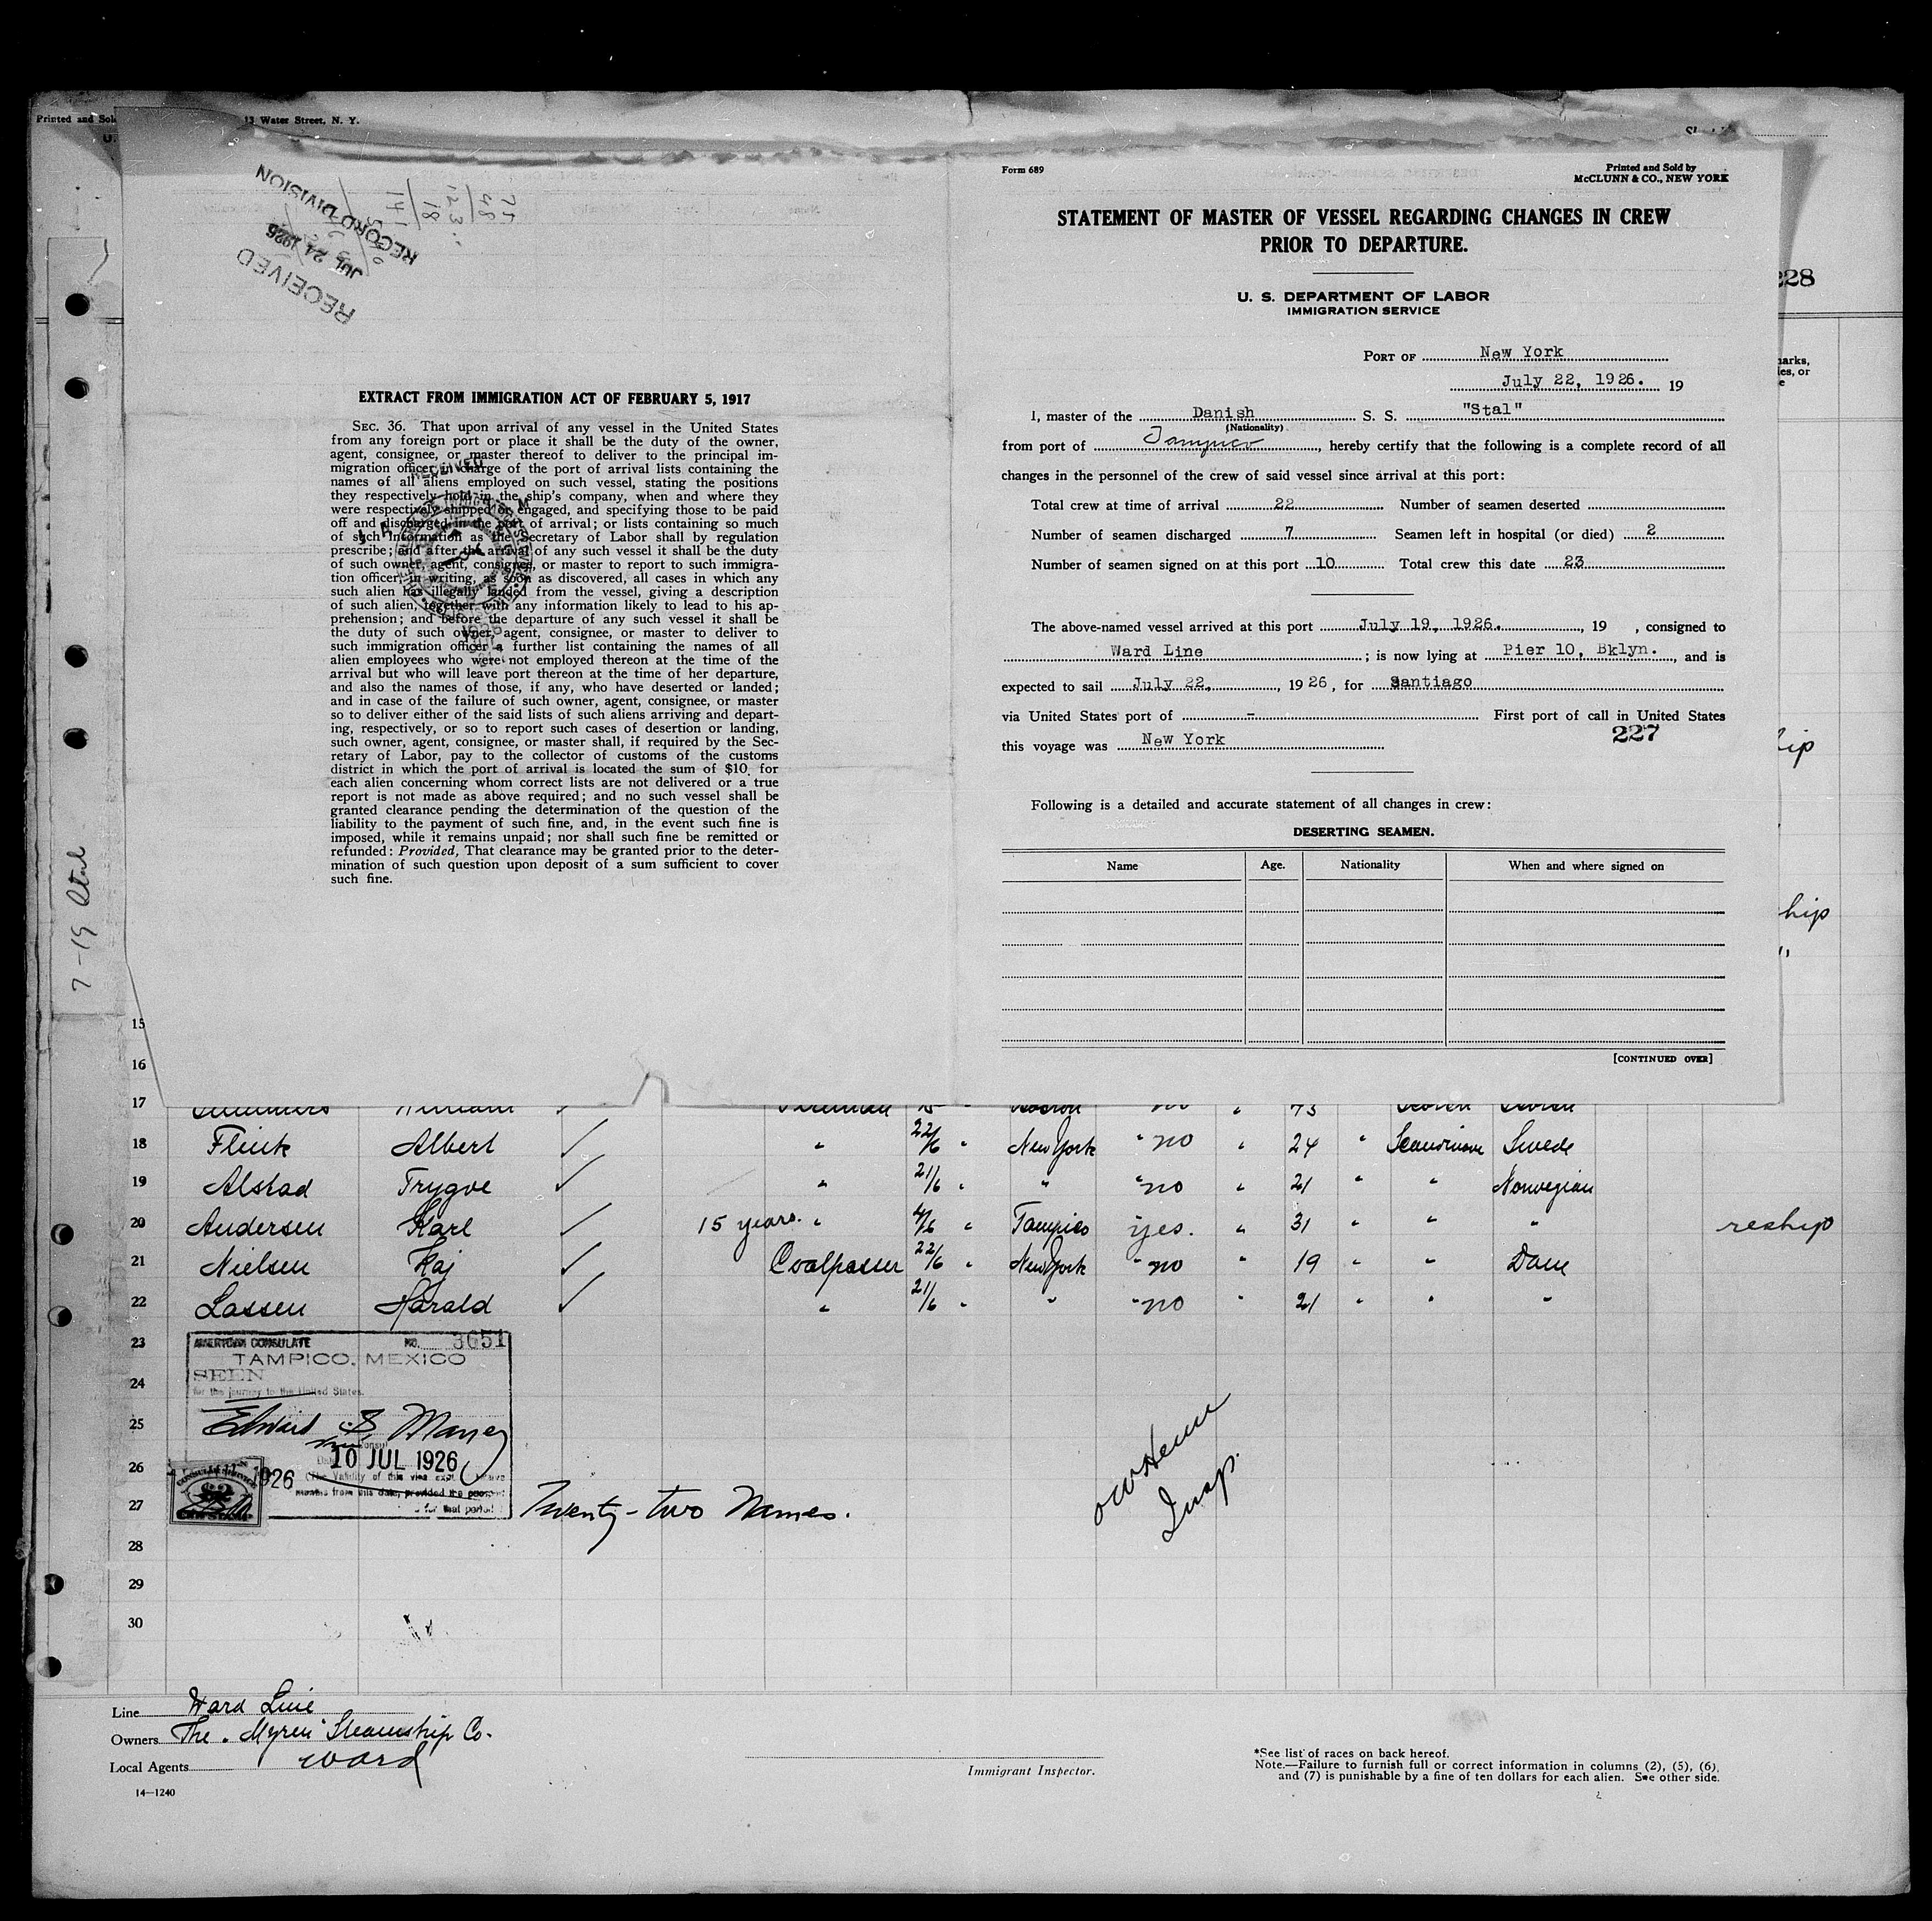 Printed and Sol
13 Water Street, N. Y.
228
RECEIVED
JUL 24 1926
RECORD DIVISION
75
48
123
18
141
EXTRACT FROM IMMIGRATION ACT OF FEBRUARY 5, 1917
SEC. 36. That upon arrival of any vessel in the United States
from any foreign port or place it shall be the duty of the owner,
agent, consignee, or master thereof to deliver to the principal im-
migration officer in charge of the port of arrival lists containing the
names of all aliens employed on such vessel, stating the positions
they respectively hold in the ship's company, when and where they
were respectively shipped or engaged, and specifying those to be paid
off and discharged in the port of arrival; or lists containing so much
of such Information as the Secretary of Labor shall by regulation
prescribe; and after the arrival of any such vessel it shall be the duty
of such owner, agent, consignee, or master to report to such immigra-
tion officer, in writing, as soon as discovered, all cases in which any
such alien has illegally landed from the vessel, giving a description
of such alien, together with any information likely to lead to his ap-
prehension; and before the departure of any such vessel it shall be
the duty of such owner, agent, consignee, or master to deliver to
such immigration officer a further list containing the names of all
alien employees who were not employed thereon at the time of the
arrival but who will leave port thereon at the time of her departure,
and also the names of those, if any, who have deserted or landed;
and in case of the failure of such owner, agent, consignee, or master
so to deliver either of the said lists of such aliens arriving and depart-
ing, respectively, or so to report such cases of desertion or landing,
such owner, agent, consignee, or master shall, if required by the Sec-
retary of Labor, pay to the collector of customs of the customs
district in which the port of arrival is located the sum of $10 for
each alien concerning whom correct lists are not delivered or a true
report is not made as above required; and no such vessel shall be
granted clearance pending the determination of the question of the
liability to the payment of such fine, and, in the event such fine is
imposed, while it remains unpaid; nor shall such fine be remitted or
refunded: Provided, That clearance may be granted prior to the deter-
mination of such question upon deposit of a sum sufficient to cover
such fine.
Form 689
Printed and Sold by
McCLUNN & CO., NEW YORK
STATEMENT OF MASTER OF VESSEL REGARDING CHANGES IN CREW
PRIOR TO DEPARTURE.
U. S. DEPARTMENT OF LABOR
IMMIGRATION SERVICE
PORT OF New York
July 22, 1926. 19
I, master of the Danish S. S. "Stal"
(Nationality)
from port of Tampico, hereby certify that the following is a complete record of all
changes in the personnel of the crew of said vessel since arrival at this port:
Total crew at time of arrival 22 Number of seamen deserted
Number of seamen discharged 7 Seamen left in hospital (or died) 2
Number of seamen signed on at this port 10 Total crew this date 23
The above-named vessel arrived at this port July 19, 1926., 19 , consigned to
Ward Line ; is now lying at Pier 10, Bklyn., and is
expected to sail July 22, , 1926, for Santiago
via United States port of - First port of call in United States
this voyage was New York
227
Following is a detailed and accurate statement of all changes in crew:
DESERTING SEAMEN.
Name Age. Nationality When and where signed on
[CONTINUED OVER]
7-19 Stal
hip
15
16
17
18 Flink Albert ✓ " 22/6 " New York " no " 24 " Scandinav Swede
19 Alstad Trygve ✓ " 21/6 " " " no " 21 " " Norwegian
20 Andersen Karl ✓ 15 years. " 4/6 " Tampico yes. " 31 " " " reship
21 Nielsen Kaj ✓ Coalpasser 22/6 " New York " no " 19 " " Dane
22 Lassen Harald ✓ " 21/6 " " " no " 21 " " "
23
24
25
26
27
28
29
30
AMERICAN CONSULATE NO. 3651
TAMPICO, MEXICO
SEEN
for the journey to the United States.
Edward S. Maney
10 JUL 1926
1926
Twenty-two Names.
Insp.
Line Ward Line
Owners The "Myren" Steamship Co.
Local Agents Ward
14—1240
Immigrant Inspector.
*See list of races on back hereof.
Note.—Failure to furnish full or correct information in columns (2), (5), (6),
and (7) is punishable by a fine of ten dollars for each alien. See other side.